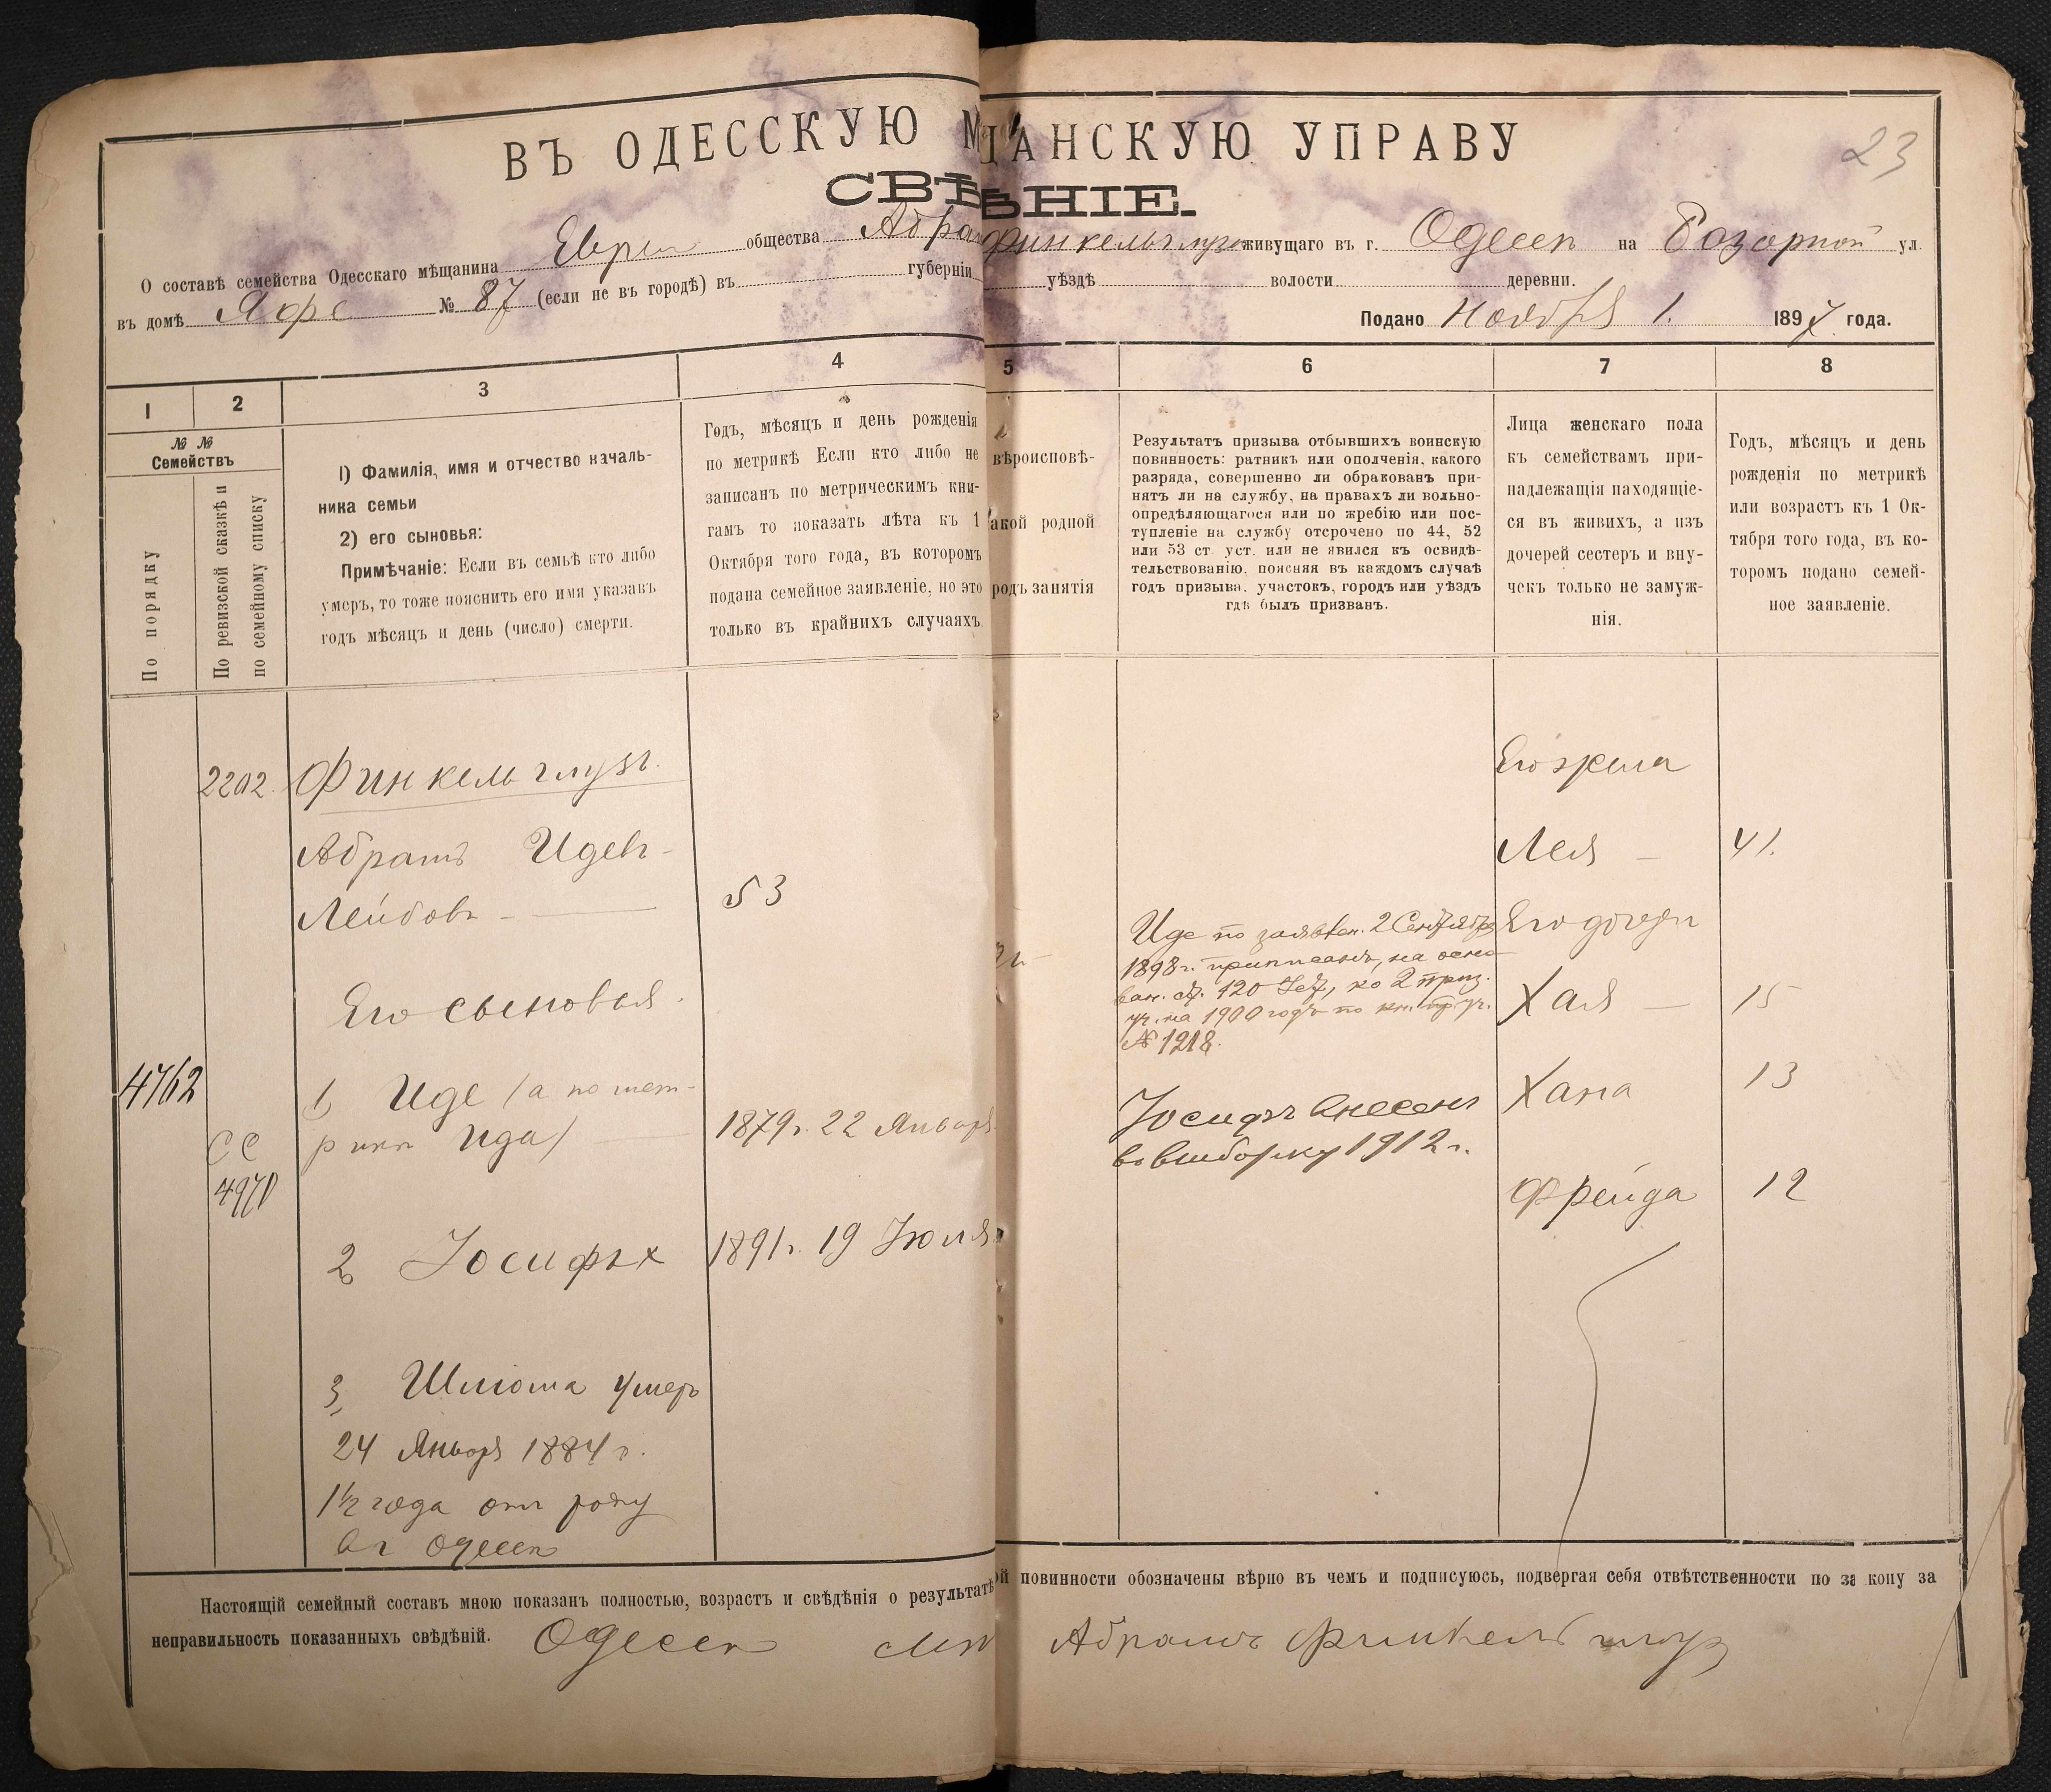 23
ВЪ ОДЕССКУЮ М ЩАНСКУЮ УПРАВУ
СВѢ ѢНІЕ.
О составѣ семейства Одесскаго мѣщанина Евр общества Абра Финкельглузъ живущаго въ г. Одессѣ на Базарной ул.
въ домѣ № 87 (если не въ городѣ) въ губерніи уѣздѣ волости деревни.
Подано Ноября 1. 1897 года.
1 2 3 4 5 6 7 8
№ № Семействъ
По порядку
По ревизской сказкѣ и
по семейному списку
1) Фамилія, имя и отчество началь-
ника семьи
2) его сыновья:
Примѣчаніе: Если въ семьѣ кто либо
умеръ, то тоже пояснить его имя указавъ
годъ мѣсяцъ и день (число) смерти.
Годъ, мѣсяцъ и день рожденія
по метрикѣ Если кто либо не
записанъ по метрическимъ кни-
гамъ то показать лѣта къ 1
Октября того года, въ которомъ
подана семейное заявленіе, но это
только въ крайнихъ случаяхъ
вѣроисповѣ-
акой родной
родъ занятія
Результатъ призыва отбывшихъ воинскую
повинность: ратникъ или ополченія, какого
разряда, совершенно ли обракованъ при-
нятъ ли на службу, на правахъ ли вольно-
опредѣляющагося или по жребію или пос-
тупленіе на службу отсрочено по 44, 52
или 53 ст. уст. или не явился къ освидѣ-
тельствованію, поясняя въ каждомъ случаѣ
годъ призыва, участокъ, городъ или уѣздъ
гдѣ былъ призванъ.
Лица женскаго пола
къ семействамъ при-
надлежащія находящіе-
ся въ живихъ, а изъ
дочерей сестеръ и вну-
чекъ только не замуж-
нія.
Годъ, мѣсяцъ и день
рожденія по метрикѣ
или возрастъ къ 1 Ок-
тября того года, въ ко-
торомъ подано семей-
ное заявленіе.
2202 Финкельглузъ.
Абрамъ Идель-
Лейбовъ - 53
Его сыновья.
4762
1) Иде (а по мет-
рикѣ Ида) 1879г. 22 Января
СС
4970
2) Іосифъ х 1891г. 19 Іюля
3) Шліома умеръ
24 Января 1884г.
1½ года отъ роду
въ Одессѣ
Иде по заявлен. 2 Сентября
1898г. приписанъ, на осно-
ван. ст. 120 Уст., ко 2 приз.
уч. на 1900 годъ по кн. пр. уч.
№ 1218.
Іосифъ внесенъ
въ выборку 1912г.
Его жена
Лея - 41.
Его дочери
Хая - 15
Хана 13
Фрейда 12
Настоящій семейный составъ мною показанъ полностью, возрастъ и свѣдѣнія о результатѣ ой повинности обозначены вѣрно въ чемъ и подписуюсь, подвергая себя отвѣтственности по закону за
неправильность показанныхъ свѣдѣній. Одесск Абрамъ Финкельглузъ